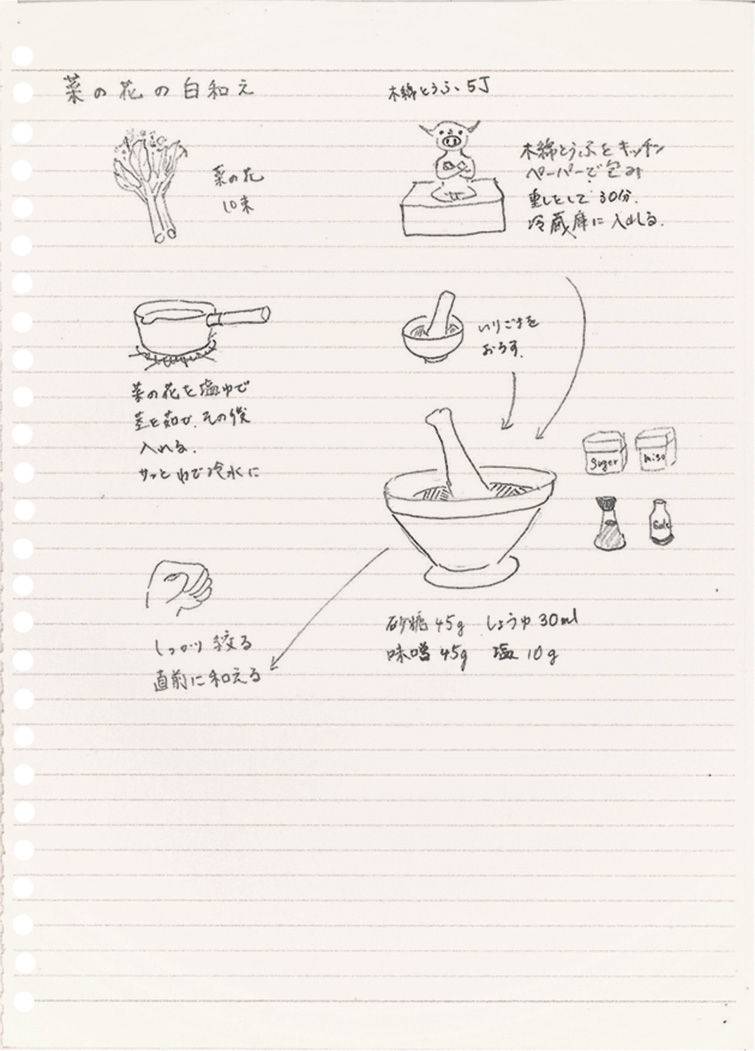 菜の花の白和え
木綿とうふ、5丁
菜の花
10束
木綿とうふをキッチン
ペーパーで包み
重しとして30分.
冷蔵庫に入れる.
いりごまを
おろす.
菜の花を塩ゆで
茎を茹で.その後
入れる.
サッとゆで冷水に
Suger
miso
Salt
しっかり絞る
直前に和える
砂糖45g しょうゆ30ml
味噌45g 塩10g